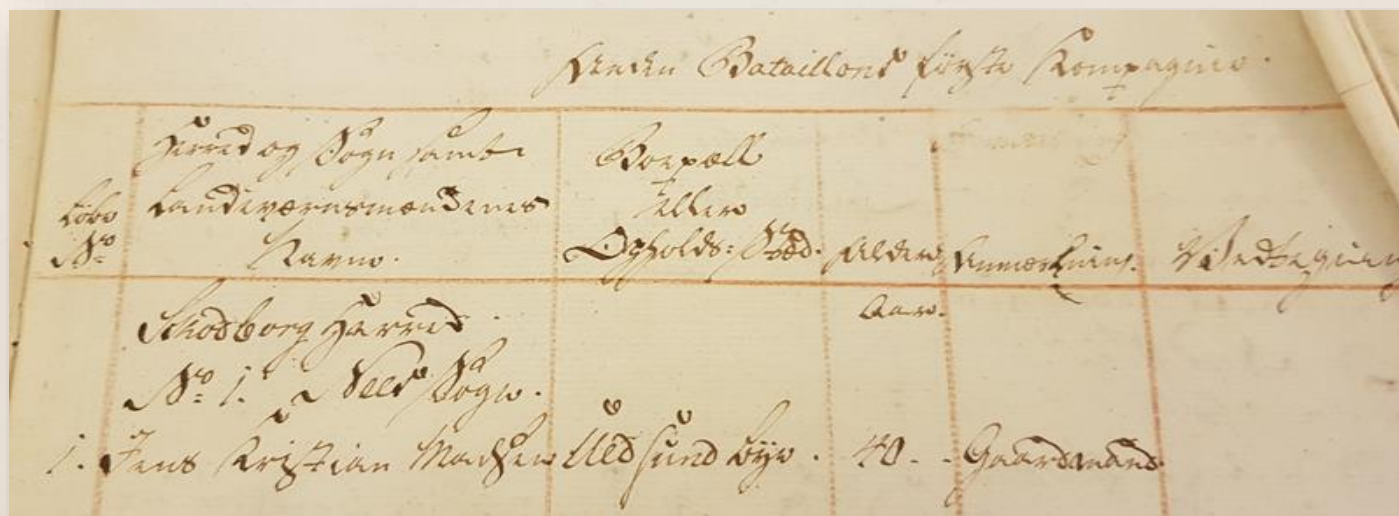 Anden Bataillons første Kompagnie.
Herred og Sogn samt
Landeværnsmændenes
Navne.
Løbe
No
Bopæll
eller
Opholds: Stæd.
Alder
Anmærkning.
Vedtegning
Skodborg Herred
Aar.
No: 1. Nees Sogn.
1. Jens Kristian Madsen Uldsund bÿe. 40. Gaardmand